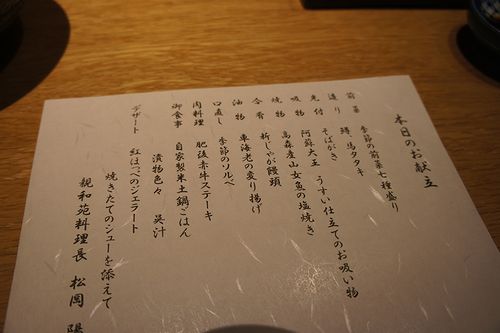 本日のお献立
前菜 季節の前菜七種盛り
造り 鱒、馬タタキ
先付 そばがき
吸物 阿蘇大王 うすい仕立てのお吸い物
焼物 高森産山女魚の塩焼き
合肴 新じゃが饅頭
油物 車海老の変り揚げ
口直し 季節のソルベ
肉料理 肥後赤牛ステーキ
御食事 自家製米土鍋ごはん
漬物色々 呉汁
デザート 紅ほっぺのジェラート
焼きたてのシューを添えて
親和苑料理長 松岡 陽